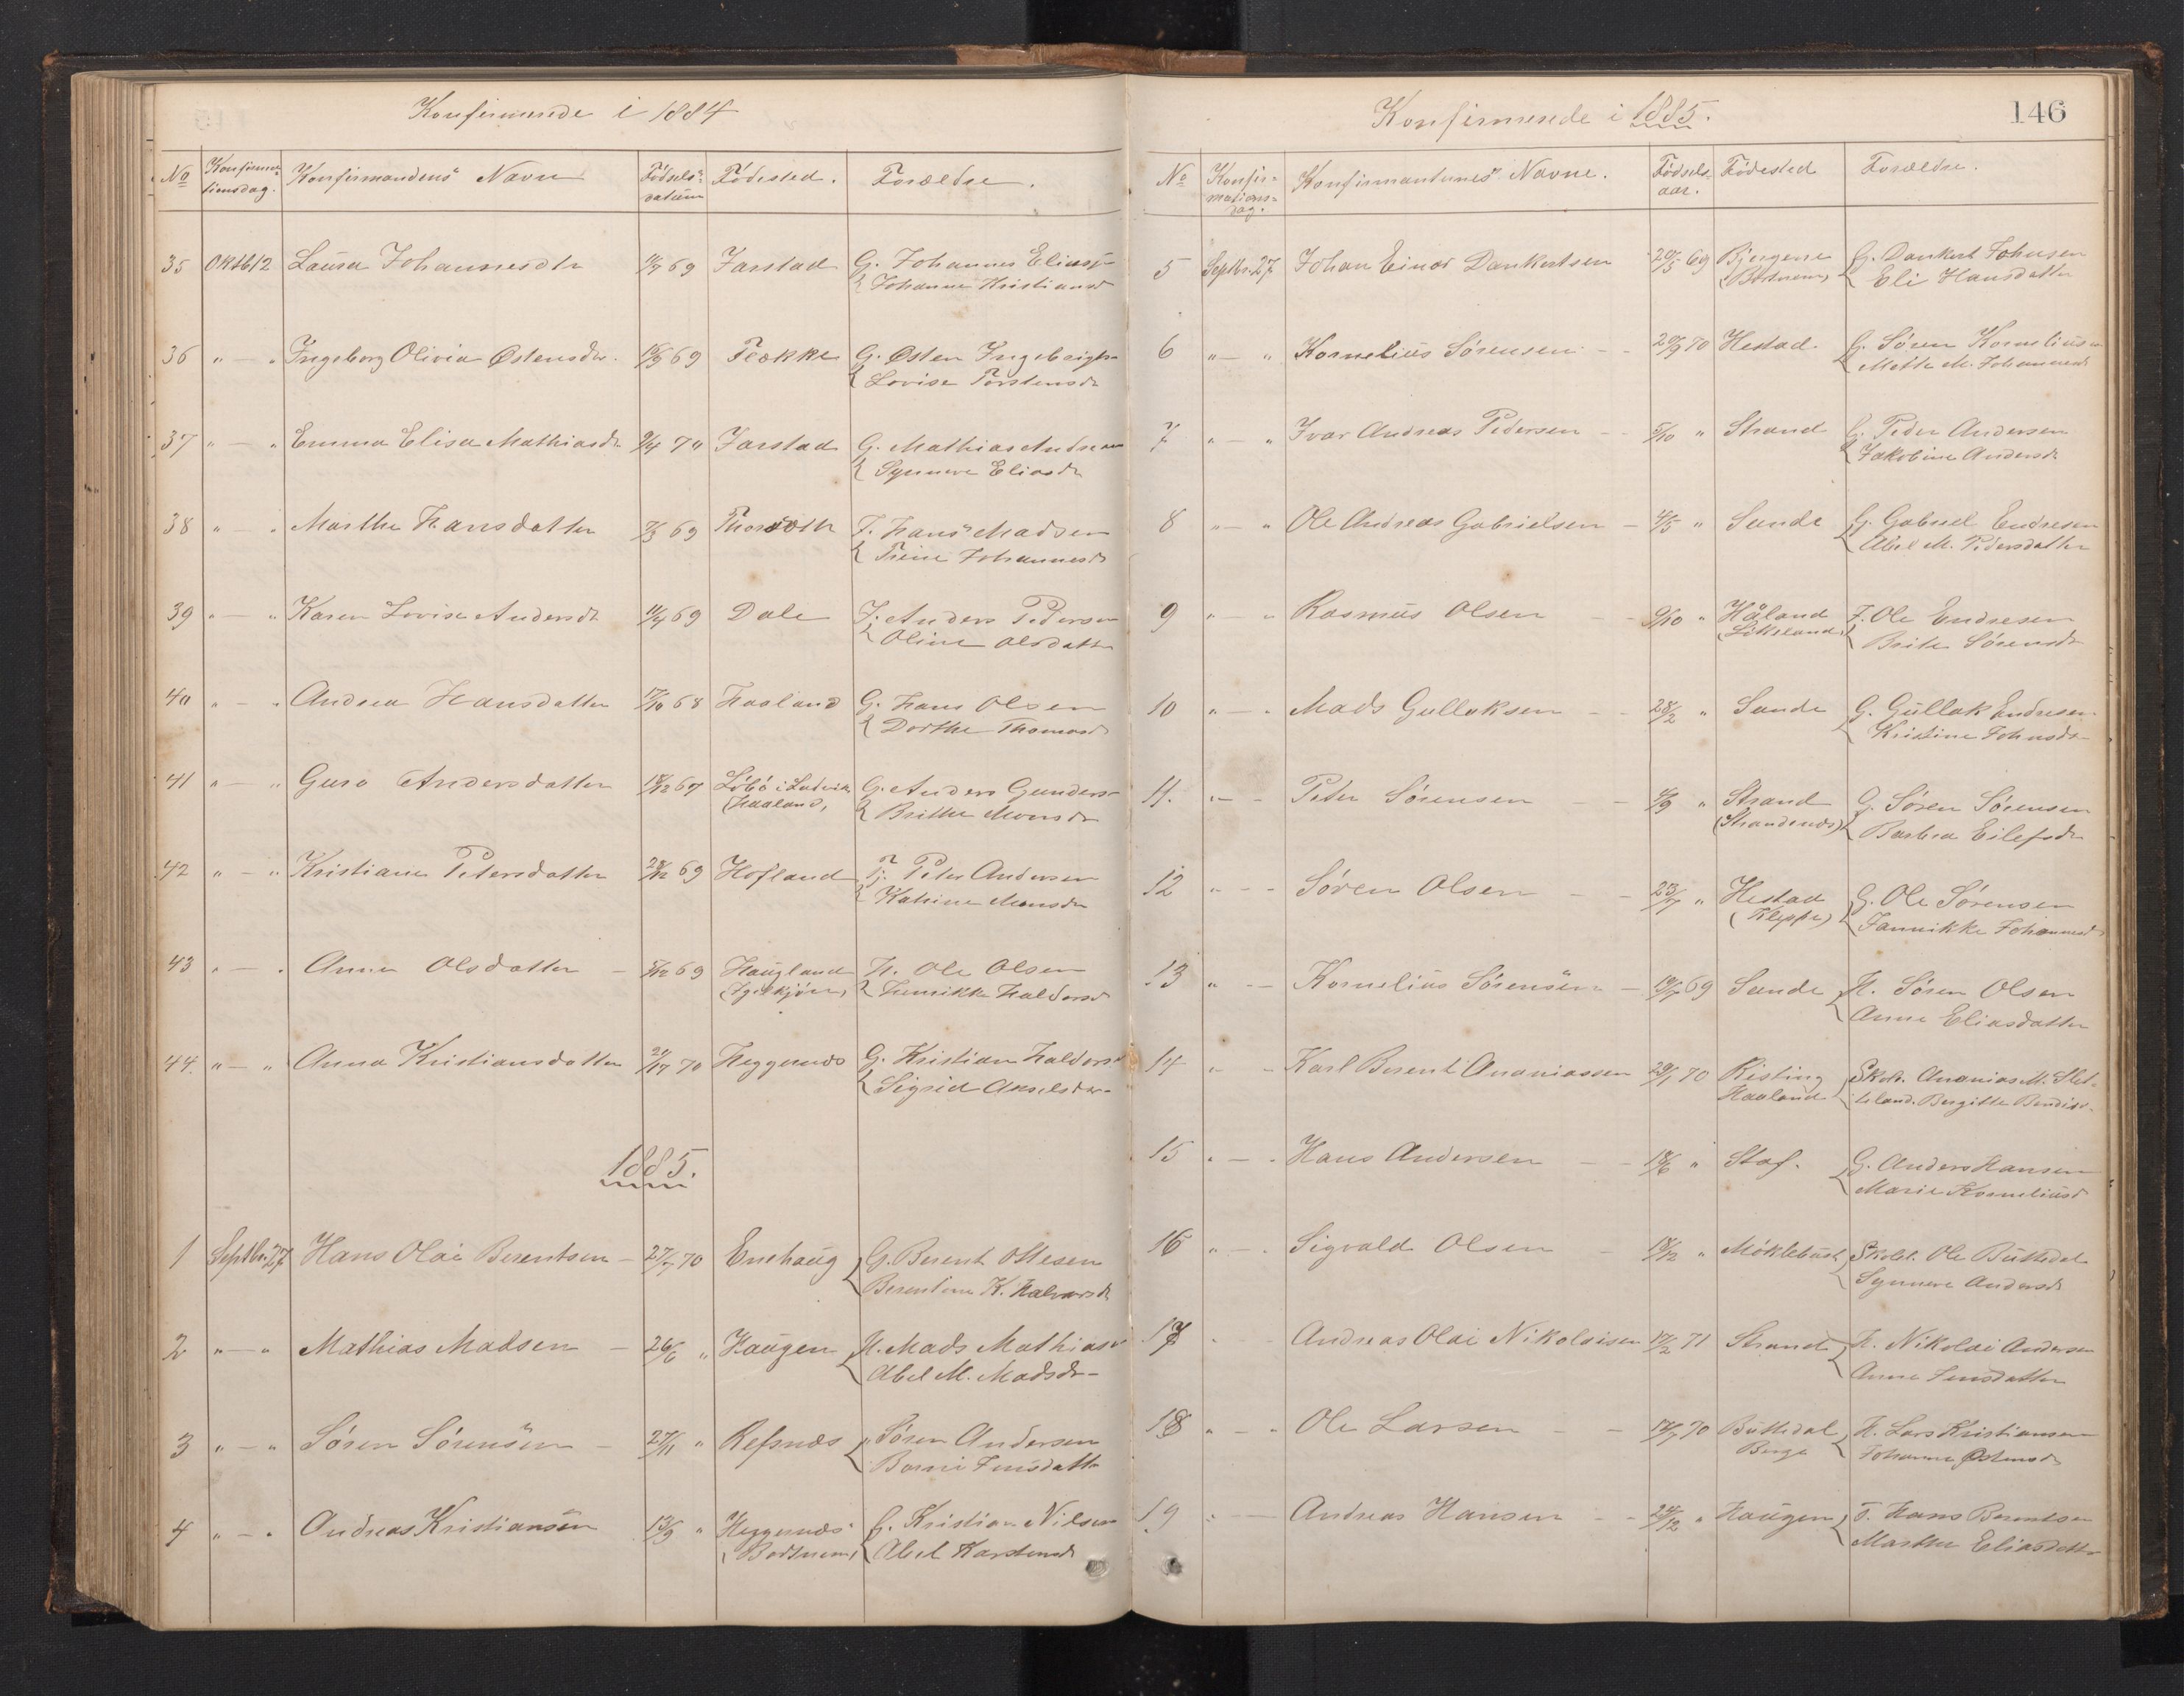 Konfirmerede i 1884
No Konfirma-tionsdag. Konfirmandens Navn Fødsels-datum Fødested. Forældre.
35 Oktb 12 Laura Johannesdtr 69 Farstad G. Johannes Elias
Johanne Kristiansd
36 " — " Ingeborg Olivia Østensdr. 69 Flekke G. Østen Ingebrigts
Lovise Torstensdr
37 " — " Emma Elisa Mathiasdr 9/4 70 Farstad G. Mathias Andreassen
Synneve Eliasdr
38 " — " Marthe Hansdatter 69 Hans Madsen
Johannesdr
39 " — " Karen Lovise Andersdr 11/4 69 Dale Anders Pedersen
Oline Olsdatter
40 " — " Andrea Hansdatter 17/10 68 Haaland G. Hans Olsen
Dorthe Thomasd
41 " — " Guro Andersdatter 18/12 67 G. Anders Gunders
(Haaland) Brithe Monsdr
42 " — " Kristiane Petersdatter 28/12 69 Hofland Peter Andersen
Katrine Monsdr
43 " — " Anna Olsdatter — 5/12 69 Haugland H. Ole Olsen
Henrikke Haldorsd
44. " — " Anna Kristiansdatter 70 Heggenæs G. Kristian Haldors
Sigrid Akselsdr
1885.
1 Septbr. 27 Hans Olai Berentsen — 27/7 70 Enehaug G. Berent Ottesen
Berentine K. Halvorsd
2 " — " Mathias Madsen — 26/6 " Haugen H. Mads Mathias
Abel M. Madsdr
3 " — " Søren Sørensen — 27/11 " Refsnæs " Søren Andersen
Jensdatter
4 " — " Andreas Kristiansen 13/9 " Heggenæs G. Kristian Nilsen
(Bostrem) Abel Karstensd
Konfirmerede i 1885.
146
No Konfir-mations-dag. Konfirmanternes Navne. Fødsels-aar. Fødested Forældre.
5 Septbr. 27 Johan Einar Dankertsen 20/5 69 Bjergene G. Dankert Johnsen
(Bostrem) Eli Hansdatter
6 " — " Kornelius Sørensen — 20/9 70 Hestad G. Søren Kornelius
Mette M. Johannesd
7 " — " Ivar Andreas Pedersen — 5/10 " Strand G. Peder Andersen
Jakobine Andersdr
8 " — " Ole Andreas Gabrielsen — 4/5 " Sande G. Gabriel Endresen
Abel M. Pedersdatter
9 " — " Rasmus Olsen — 9/10 " Håland F. Ole Endresen
Brite Sørensdr
10 " — " Mads Gullaksen — 28/2 " Sande G. Gullak Endresen
Kristine Johnsdr
11. " — " Peter Sørensen — 4/9 " Strand G. Søren Sørensen
(Strandenæs) Barbra Eilefsdr
12 " — " Søren Olsen — 23/7 " Hestad G. Ole Sørensen
(Kleppe) Jannikke Johannesd
13 " — Kornelius Sørensen — 19/7 69 Sande H. Søren Olsen
Anne Eliasdatter
14 " — " Karl Berent Ananiassen 29/1 70 Risting Skoll. Ananias M. Slet-
Haaland teland. Bergitte Bendiks
15 " — " Hans Andersen — 18/6 " Staf. G. Anders Hansen
Marie Korneliusd
16 " — " Sigvald Olsen — 18/12 " Möklebust Skoll. Ole Buttedal
Synneve Andersd
17 " — Andreas Olai Nikolaisen 17/2 71 Strand H. Nikolai Andersen
Anne Jensdatter
18 " — " Ole Larsen — 17/7 70 Buttedal H. Lars Kristiansen
Berge Johanne Østensdr
19 " — Andreas Hansen — 24/12 " Haugen F. Hans Berentsen
Marthe Eliasdatter